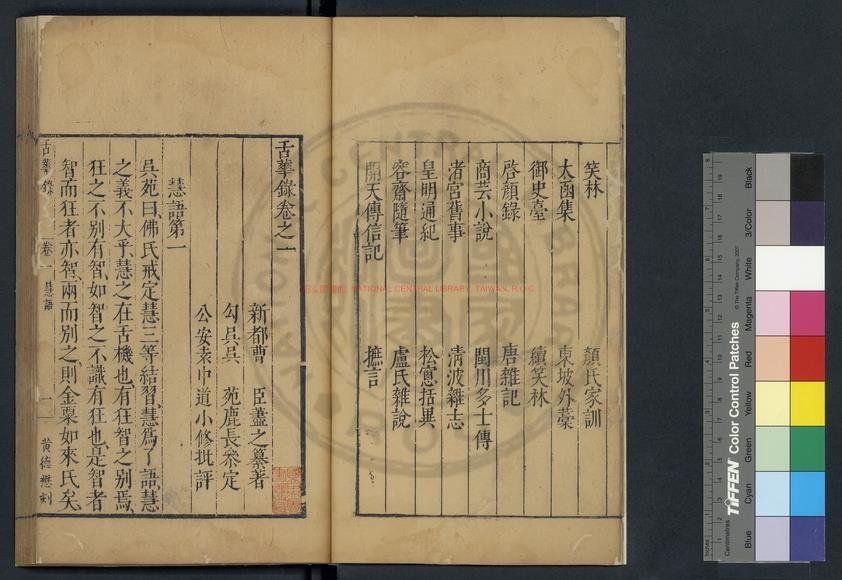 笑林 顏氏家訓
太函集 東坡外藁
御史臺 續笑林
啓顏錄 唐雜記
商芸小說 閩川多士傳
渚宮舊事 清波雜志
皇明通紀 松窻括異
容齋隨筆 盧氏雜說
開天傳信記 摭言
舌華錄卷之一
新都曹 臣藎之纂著
勾吳吳 苑鹿長叅定
公安袁中道小修批評
慧語第一
吳苑曰佛氏戒定慧三等結習慧爲了語慧
之義不大乎慧之在舌機也有狂智之别焉
狂之不别有智如智之不識有狂也是智者
智而狂者亦智兩而别之則金粟如來氏矣
舌華錄 卷一 慧語 一 黄德懋刻
NATIONAL CENTRAL LIBRARY, TAIWAN, R.O.C.
Inches
Centimetres
TIFFEN Color Control Patches
© The Tiffen Company, 2007
Blue
Cyan
Green
Yellow
Red
Magenta
White
3/Color
Black